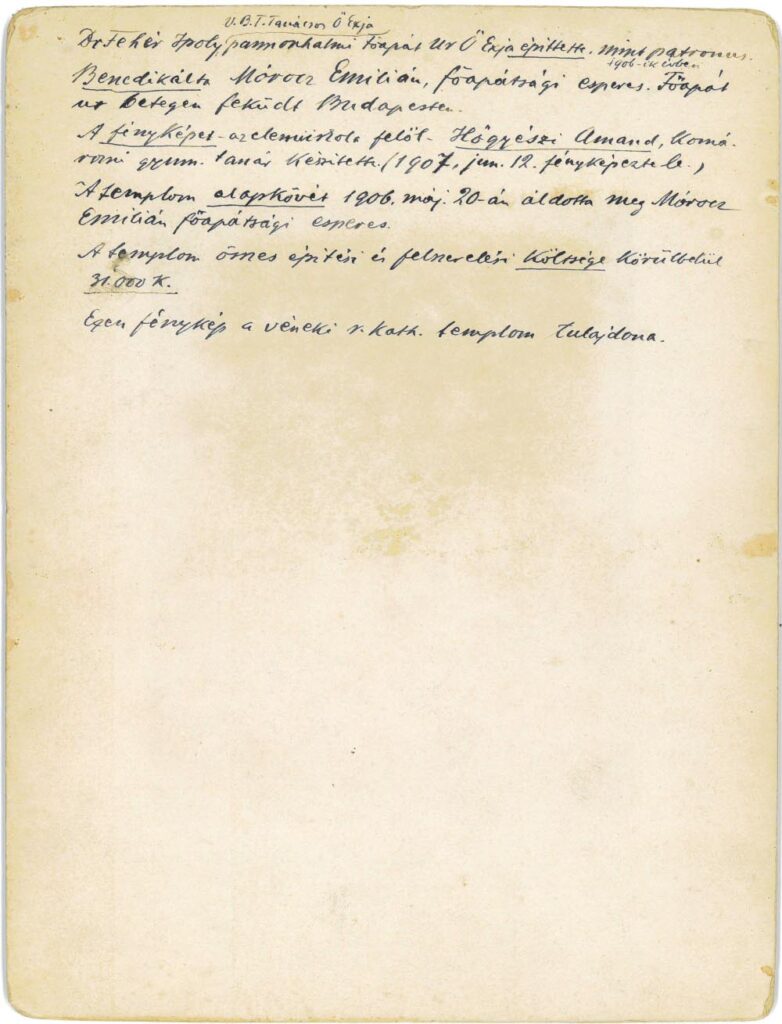 V. B. T. Tanácsos Ő Exja
Dr Fehér Ipoly pannonhalmi Főapát Ur Ő Exja építtette, mint patronus.
1906-ik évben
Benedikálta Mórocz Emilián, főapátsági esperes. Főapát
ur betegen feküdt Budapesten.
A fényképet - az elemi iskola felől - Hőgyészi Amand, Komá-
romi gymn. tanár készítette. (1907. jun. 12. fényképezte le.)
A templom alapkövét 1906. máj. 20-án áldotta meg Mórocz
Emilián főapátsági esperes.
A templom ömes építési és felszerelési költsége körülbelül
31.000 K.
Ezen fénykép a véneki r. kath. templom tulajdona.